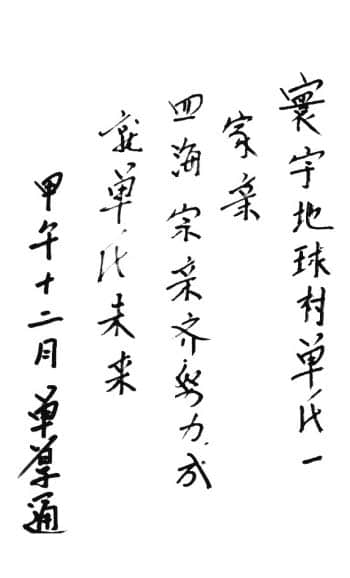 寰宇地球村单氏一
家亲
四海宗亲齐努力成
就单氏未来
甲午十二月 单淳通